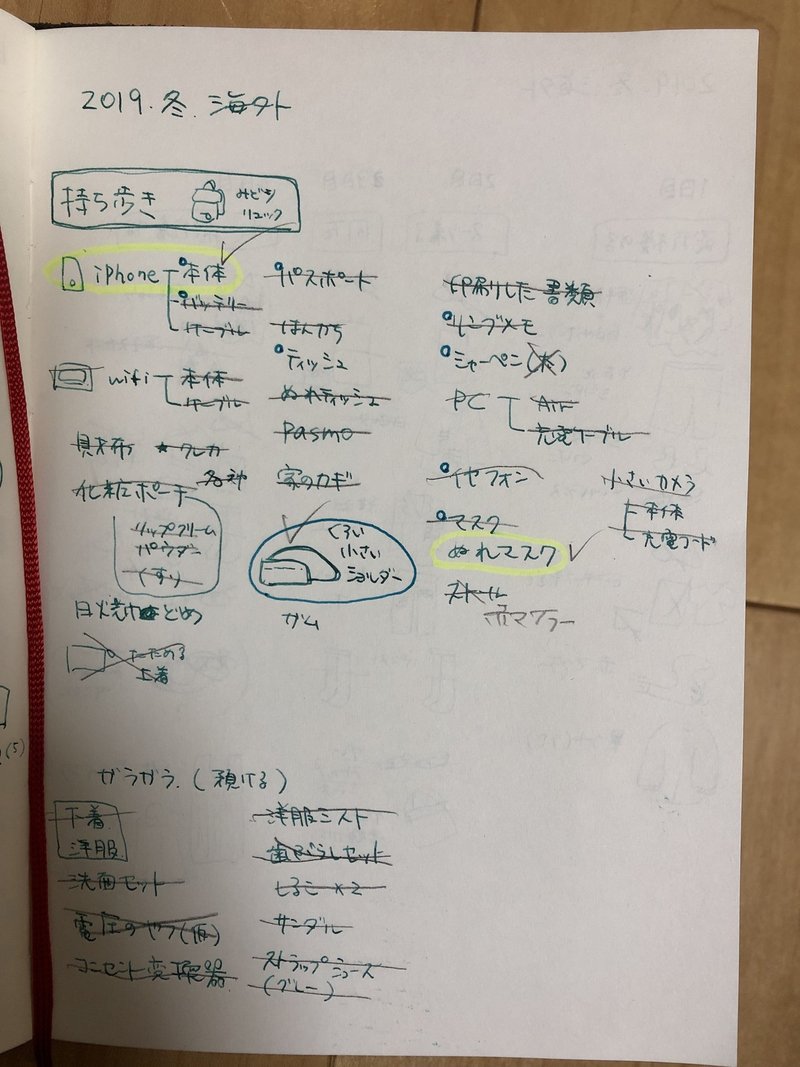 2019.冬.海外
持ち歩き
みどり
リュック
iPhone 本体
バッテリー
ケーブル
wifi 本体
ケーブル
財布 ★クレカ
各種
化粧ポーチ
リップクリーム
パウダー
くすり
日焼け止め
たためる
上着
パスポート
はんかち
ティッシュ
ぬれティッシュ
Pasmo
家のカギ
くろい
小さい
ショルダー
ガム
印刷した書類
メモ
シャーペン
PC Air
充電ケーブル
イヤフォン
マスク
ぬれマスク
ストール
赤マフラー
小さいカメラ
本体
充電コード
ガラガラ.(預ける)
下着
洋服
洗面セット
電圧のヤツ(仮)
コンセント変換器
洋服ミスト
歯ぶらしセット
×2
サンダル
ストラップシューズ
(グレー)
(5)